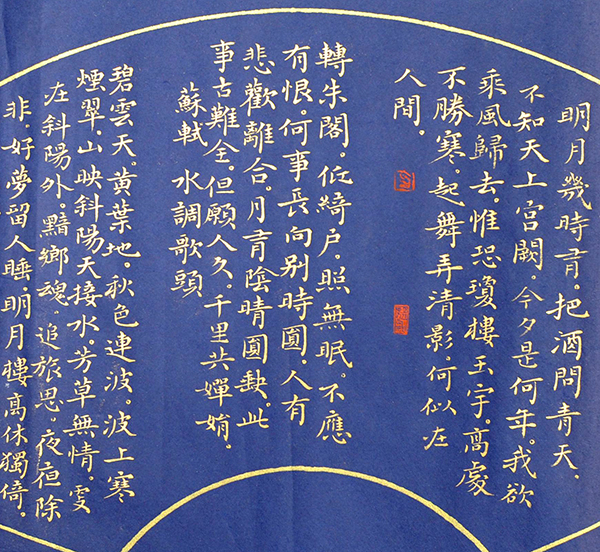 明月幾時有。把酒問青天.
不知天上宮闕。今夕是何年。我欲
乘風歸去。惟恐瓊樓玉宇。高處
不勝寒。起舞弄清影。何似在
人間。
轉朱閣。低綺户。照無眠。不應
有恨。何事長向别時圓。人有
悲歡離合。月有陰晴圓缺。此
事古難全。但願人久。千里共嬋娟。
蘇軾 水調歌頭
碧雲天。黄葉地。秋色連波。波上寒
煙翠。山映斜陽天接水。芳草無情。更
在斜陽外。黯鄉魂。追旅思。夜亱除
非.好夢留人睡.明月樓.高休獨倚。